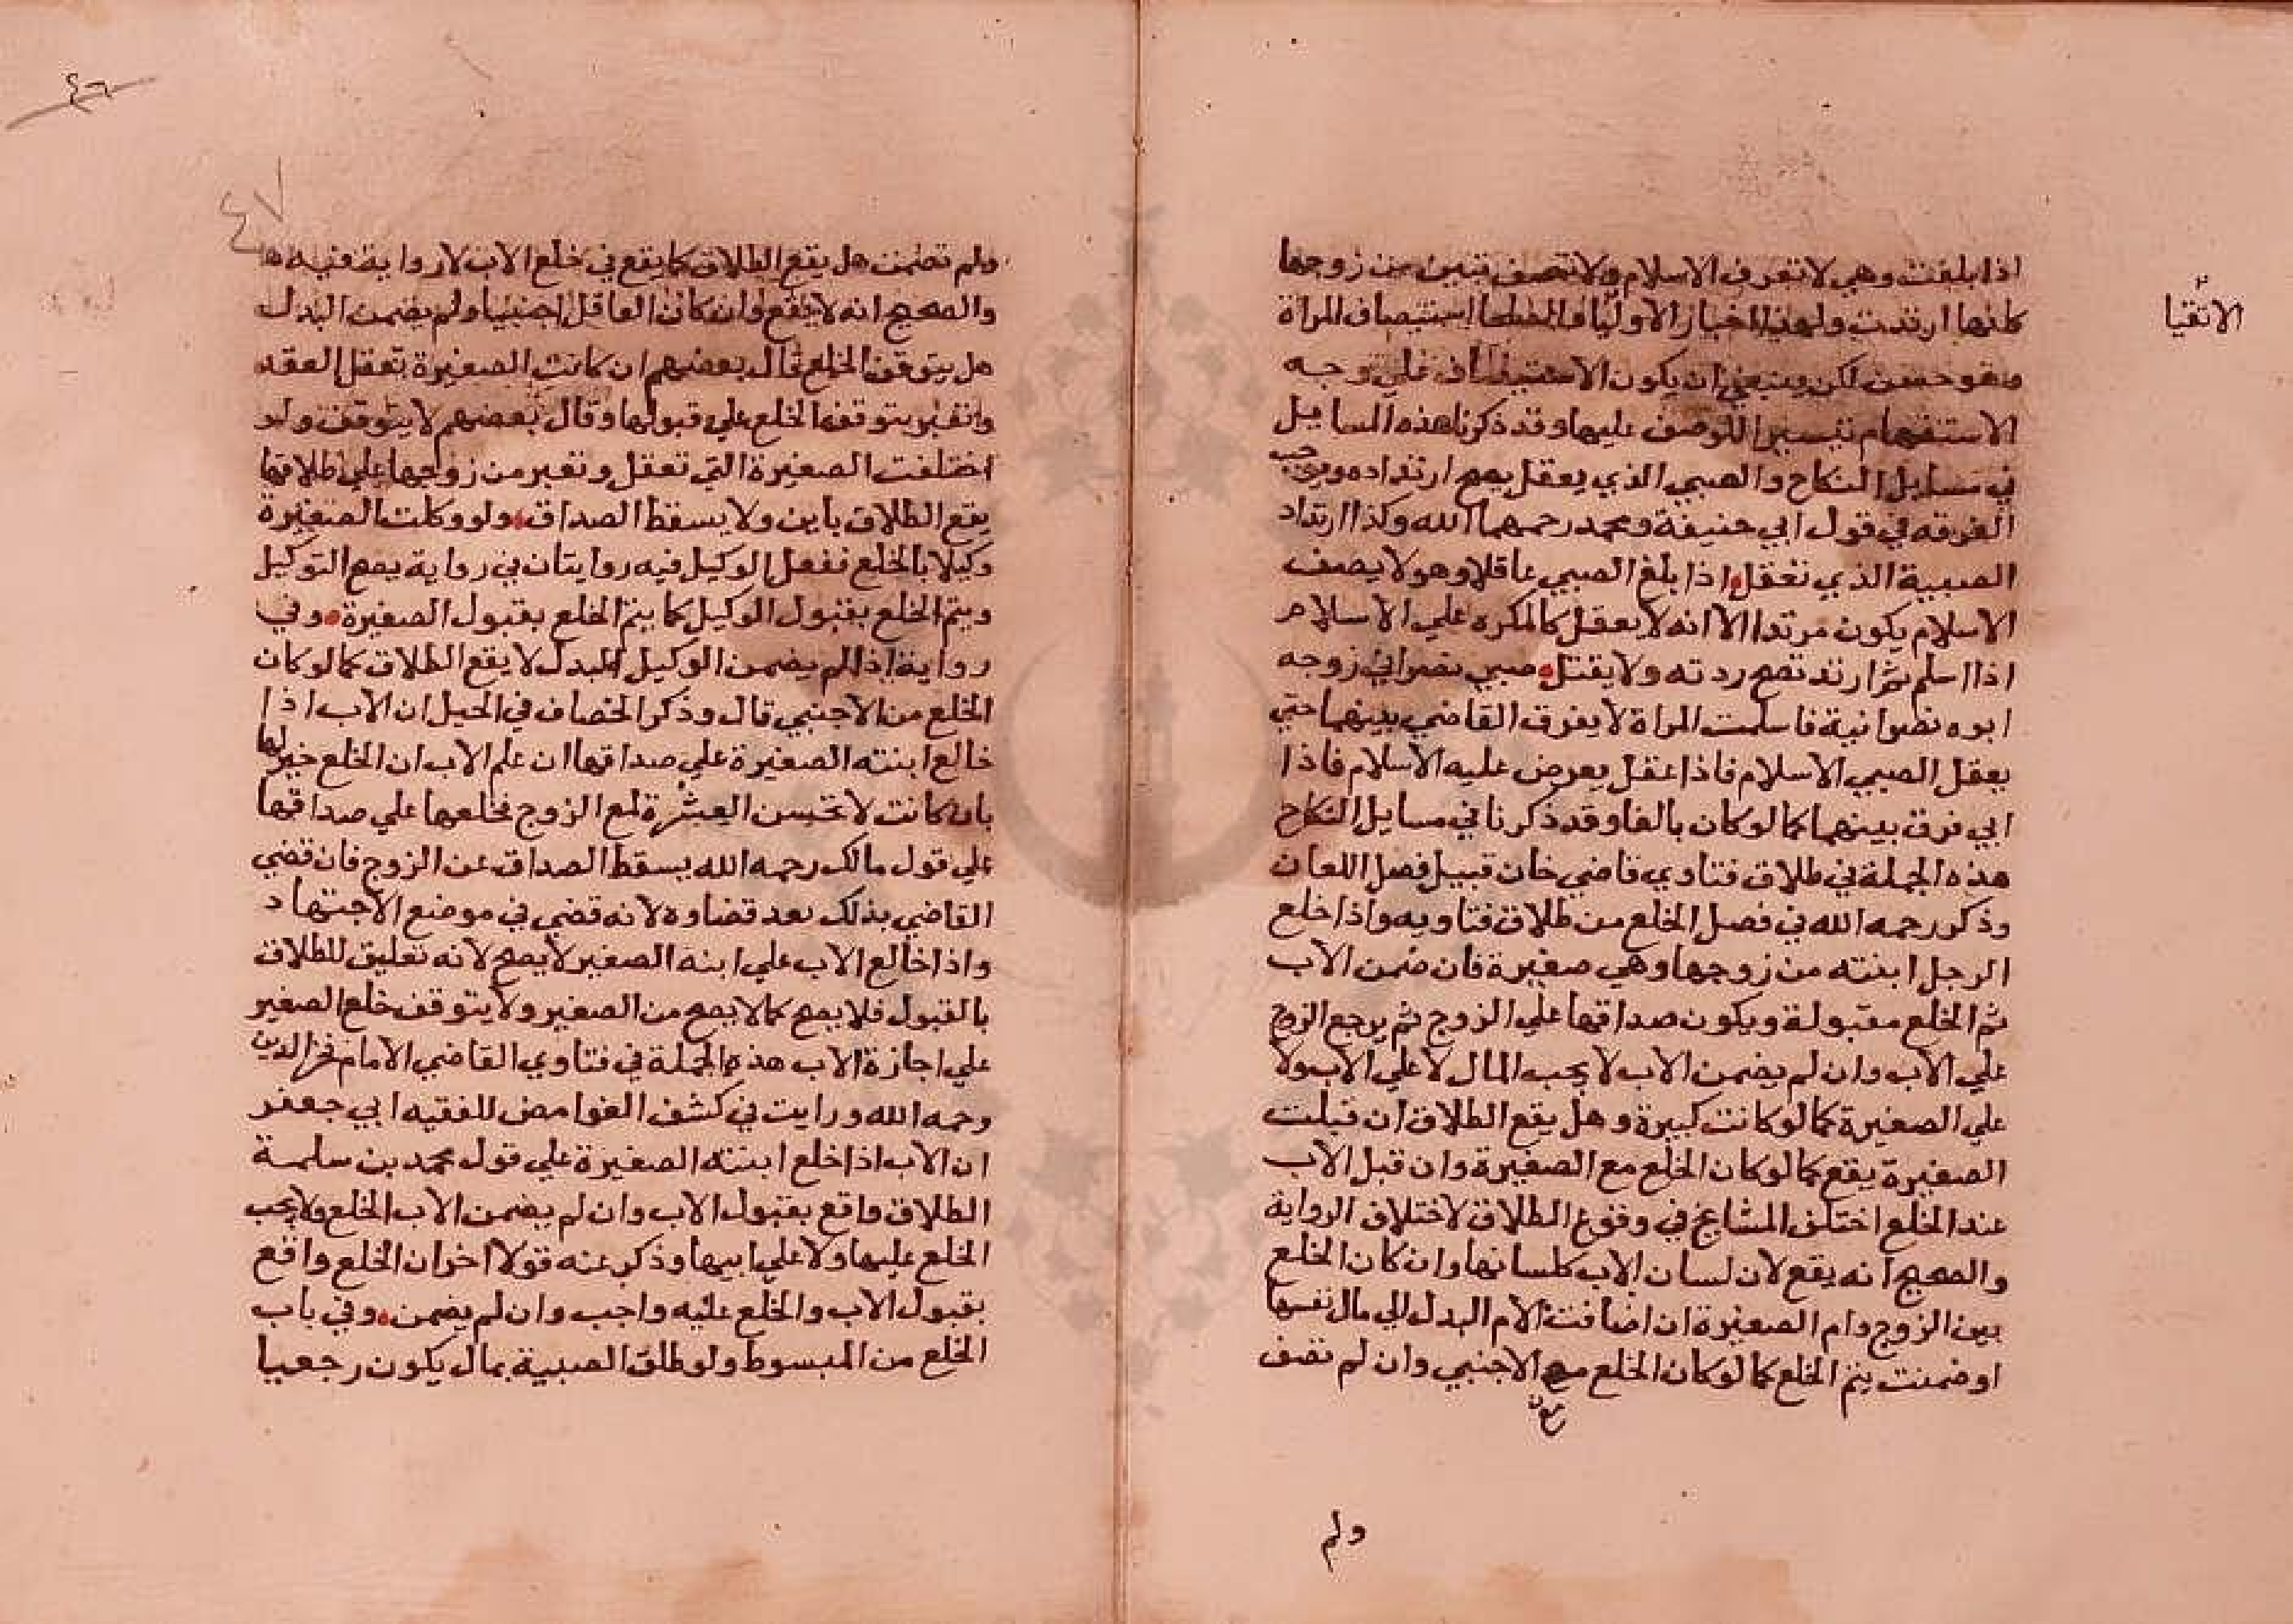 اذا بلغت وهي لا تعرف الاسلام ولا تصف تبين من زوجها
كانها ارتدت ولهذا اختار الاولياء الصلحا استيصاف المراة
الاتقيا
وهو حسن لكن ينبغي ان يكون الاستيصاف علي وجه
الاستفهام تيسيرا للوصف عليها وقد ذكرنا هذه المسايل
في مسايل النكاح والصبي الذي يعقل يصح ارتداده ويوجب
الفرقه في قول ابي حنيفة ومحمد رحمهما الله وكذا ارتداد
الصبية الذي تعقل اذا بلغ الصبي عاقلا وهو لا يصف
الاسلام يكون مرتدا الا انه لا يعقل كالمكره علي الاسلام
اذا اسلم ثم ارتد تصح ردته ولا يقتل صبي نصراني زوجه
ابوه نصرانية فاسلمت المراة لا يفرق القاضي بينهما حتي
يعقل الصبي الاسلام فاذا عقل يعرض عليه الاسلام فاذا
ابي فرق بينهما كما لو كان بالغا وقد ذكرنا في مسايل النكاح
هذه الجملة في طلاق فتاوي قاضي خان قبيل فصل اللعان
وذكر رحمه الله في فصل الخلع من طلاق فتاويه واذا خلع
الرجل ابنته من زوجها وهي صغيرة فان ضمن الاب
ثم الخلع مقبولة ويكون صداقها علي الزوج ثم يرجع الزوج
علي الاب وان لم يضمن الاب لا يجب المال لا علي الاب ولا
علي الصغيرة كما لو كانت كبيرة وهل يقع الطلاق ان قبلت
الصغيرة يقع كما لو كان الخلع مع الصغيرة وان قبل الاب
عند الخلع اختلف المشايخ في وقوع الطلاق لاختلاف الرواية
والصحيح انه يقع لان لسان الاب كلسانها وان كان الخلع
بين الزوج وام الصغيرة ان اضافت الام البدل الي مال نفسها
او ضمنت يتم الخلع كما لو كان الخلع مع الاجنبي وان لم تضف
ولم
٤٦
٤٧
ولم تضمن هل يقع الطلاق كما يقع في خلع الاب لا رواية فيه
والصحيح انه لا يقع وان كان العاقل اجنبيا ولم يضمن البدل
هل يتوقف الخلع قال بعضهم ان كانت الصغيرة تعقل العقد
وتعبر يتوقف الخلع علي قبولها وقال بعضهم لا يتوقف ولو
اختلعت الصغيرة التي تعقل وتعبر من زوجها علي طلاقها
يقع الطلاق باين ولا يسقط الصداق ولو وكلت الصغيرة
وكيلا بالخلع ففعل الوكيل فيه روايتان في رواية يصح التوكيل
ويتم الخلع بقبول الوكيل كما يتم الخلع بقبول الصغيرة وفي
رواية اذا لم يضمن الوكيل البدل لا يقع الطلاق كما لو كان
الخلع من الاجنبي قال وذكر الخصاف في الحيل ان الاب اذا
خالع ابنته الصغيرة علي صداقها ان علم الاب ان الخلع خير لها
بان كانت لا تحسن العشرة مع الزوج فخلعها علي صداقها
علي قول مالك رحمه الله يسقط الصداق عن الزوج فان قضي
القاضي بذلك نعد قضاوه لانه قضي في موضع الاجتهاد
واذا خالع الاب علي ابنه الصغير لا يصح لانه تعليق للطلاق
بالقبول فلا يصح كما لا يصح من الصغير ولا يتوقف خلع الصغير
علي اجازة الاب هذه الجملة في فتاوي القاضي الامام فخر الدين
رحمه الله ورايت في كشف الغوامض للفقيه ابي جعفر
ان الاب اذا خلع ابنته الصغيرة علي قول محمد بن سلمة
الطلاق واقع بقبول الاب وان لم يضمن الاب الخلع ولا يجب
الخلع عليها ولا علي ابيها وذكر عنه قولا اخر ان الخلع واقع
بقبول الاب والخلع عليه واجب وان لم يضمن وفي باب
الخلع من المبسوط ولو طلق الصبية بمال يكون رجعيا